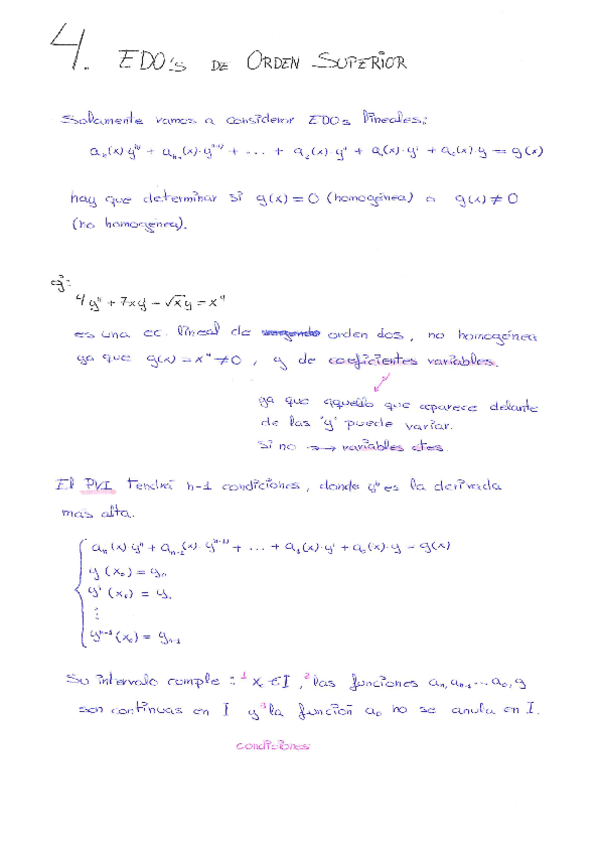 4. EDO's DE ORDEN SUPERIOR
Solamente vamos a considerar EDOs lineales:
aₙ(x)·yⁿ⁾ + aₙ₋₁(x)·yⁿ⁻¹⁾ + ... + a₂(x)·y'' + a₁(x)·y' + a₀(x)·y = g(x)
hay que determinar si g(x) = 0 (homogénea) o g(x) ≠ 0
(no homogénea).
ej:
4y'' + 7xy - √x y = x⁴
es una ec. lineal de orden dos, no homogénea
ya que g(x) = x⁴ ≠ 0, y de coeficientes variables.
ya que aquello que aparece delante
de las 'y' puede variar.
Si no → variables ctes.
El PVI tendrá n-1 condiciones, donde yⁿ es la derivada
más alta.
aₙ(x)·yⁿ + aₙ₋₁(x)·yⁿ⁻¹⁾ + ... + a₁(x)·y' + a₀(x)·y = g(x)
y(x₀) = y₀
y'(x₀) = y₁
⋮
yⁿ⁻¹(x₀) = yₙ₋₁
Su intervalo cumple: ¹ x₀ ∈ I, ² las funciones aₙ, aₙ₋₁ ... a₀, g
son continuas en I y ³ la función aₙ no se anula en I.
condiciones